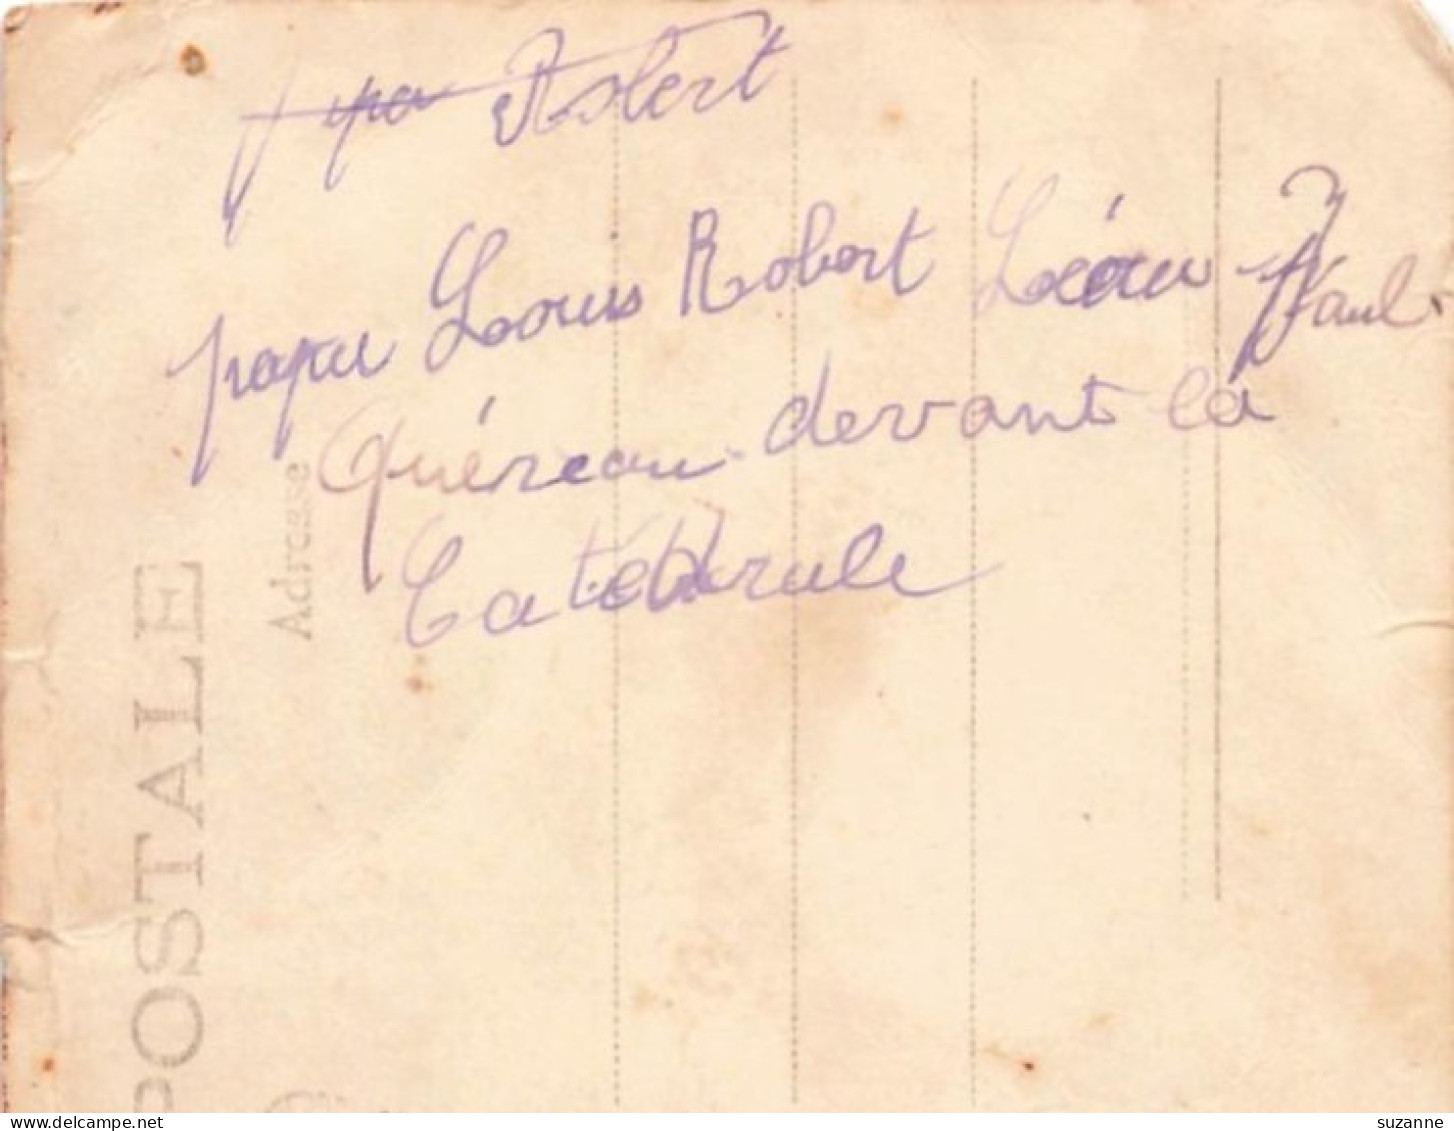 pa Robert
papa Louis Robert Léon Paul
Quéreau devant la
Catédrale
Adresse
POSTALE
www.delcampe.net
suzanne